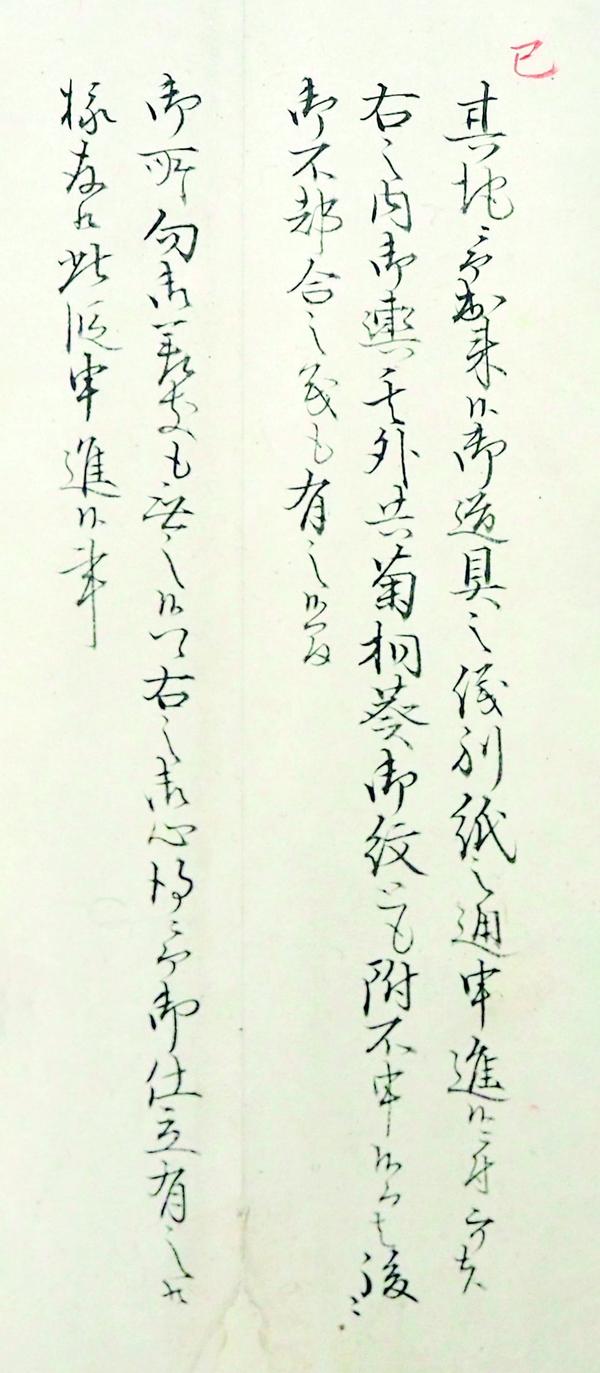 巳
其地ニ而出来候御道具之儀別紙之通申進候ニ付而者
右之内御輿其外共菊桐葵御紋とも附不申候而者後ニ
御不都合之義も有之候間
御所向御差支も無之候ハヽ右之御心得ニ而御仕立有之候
様存候此段申進候事